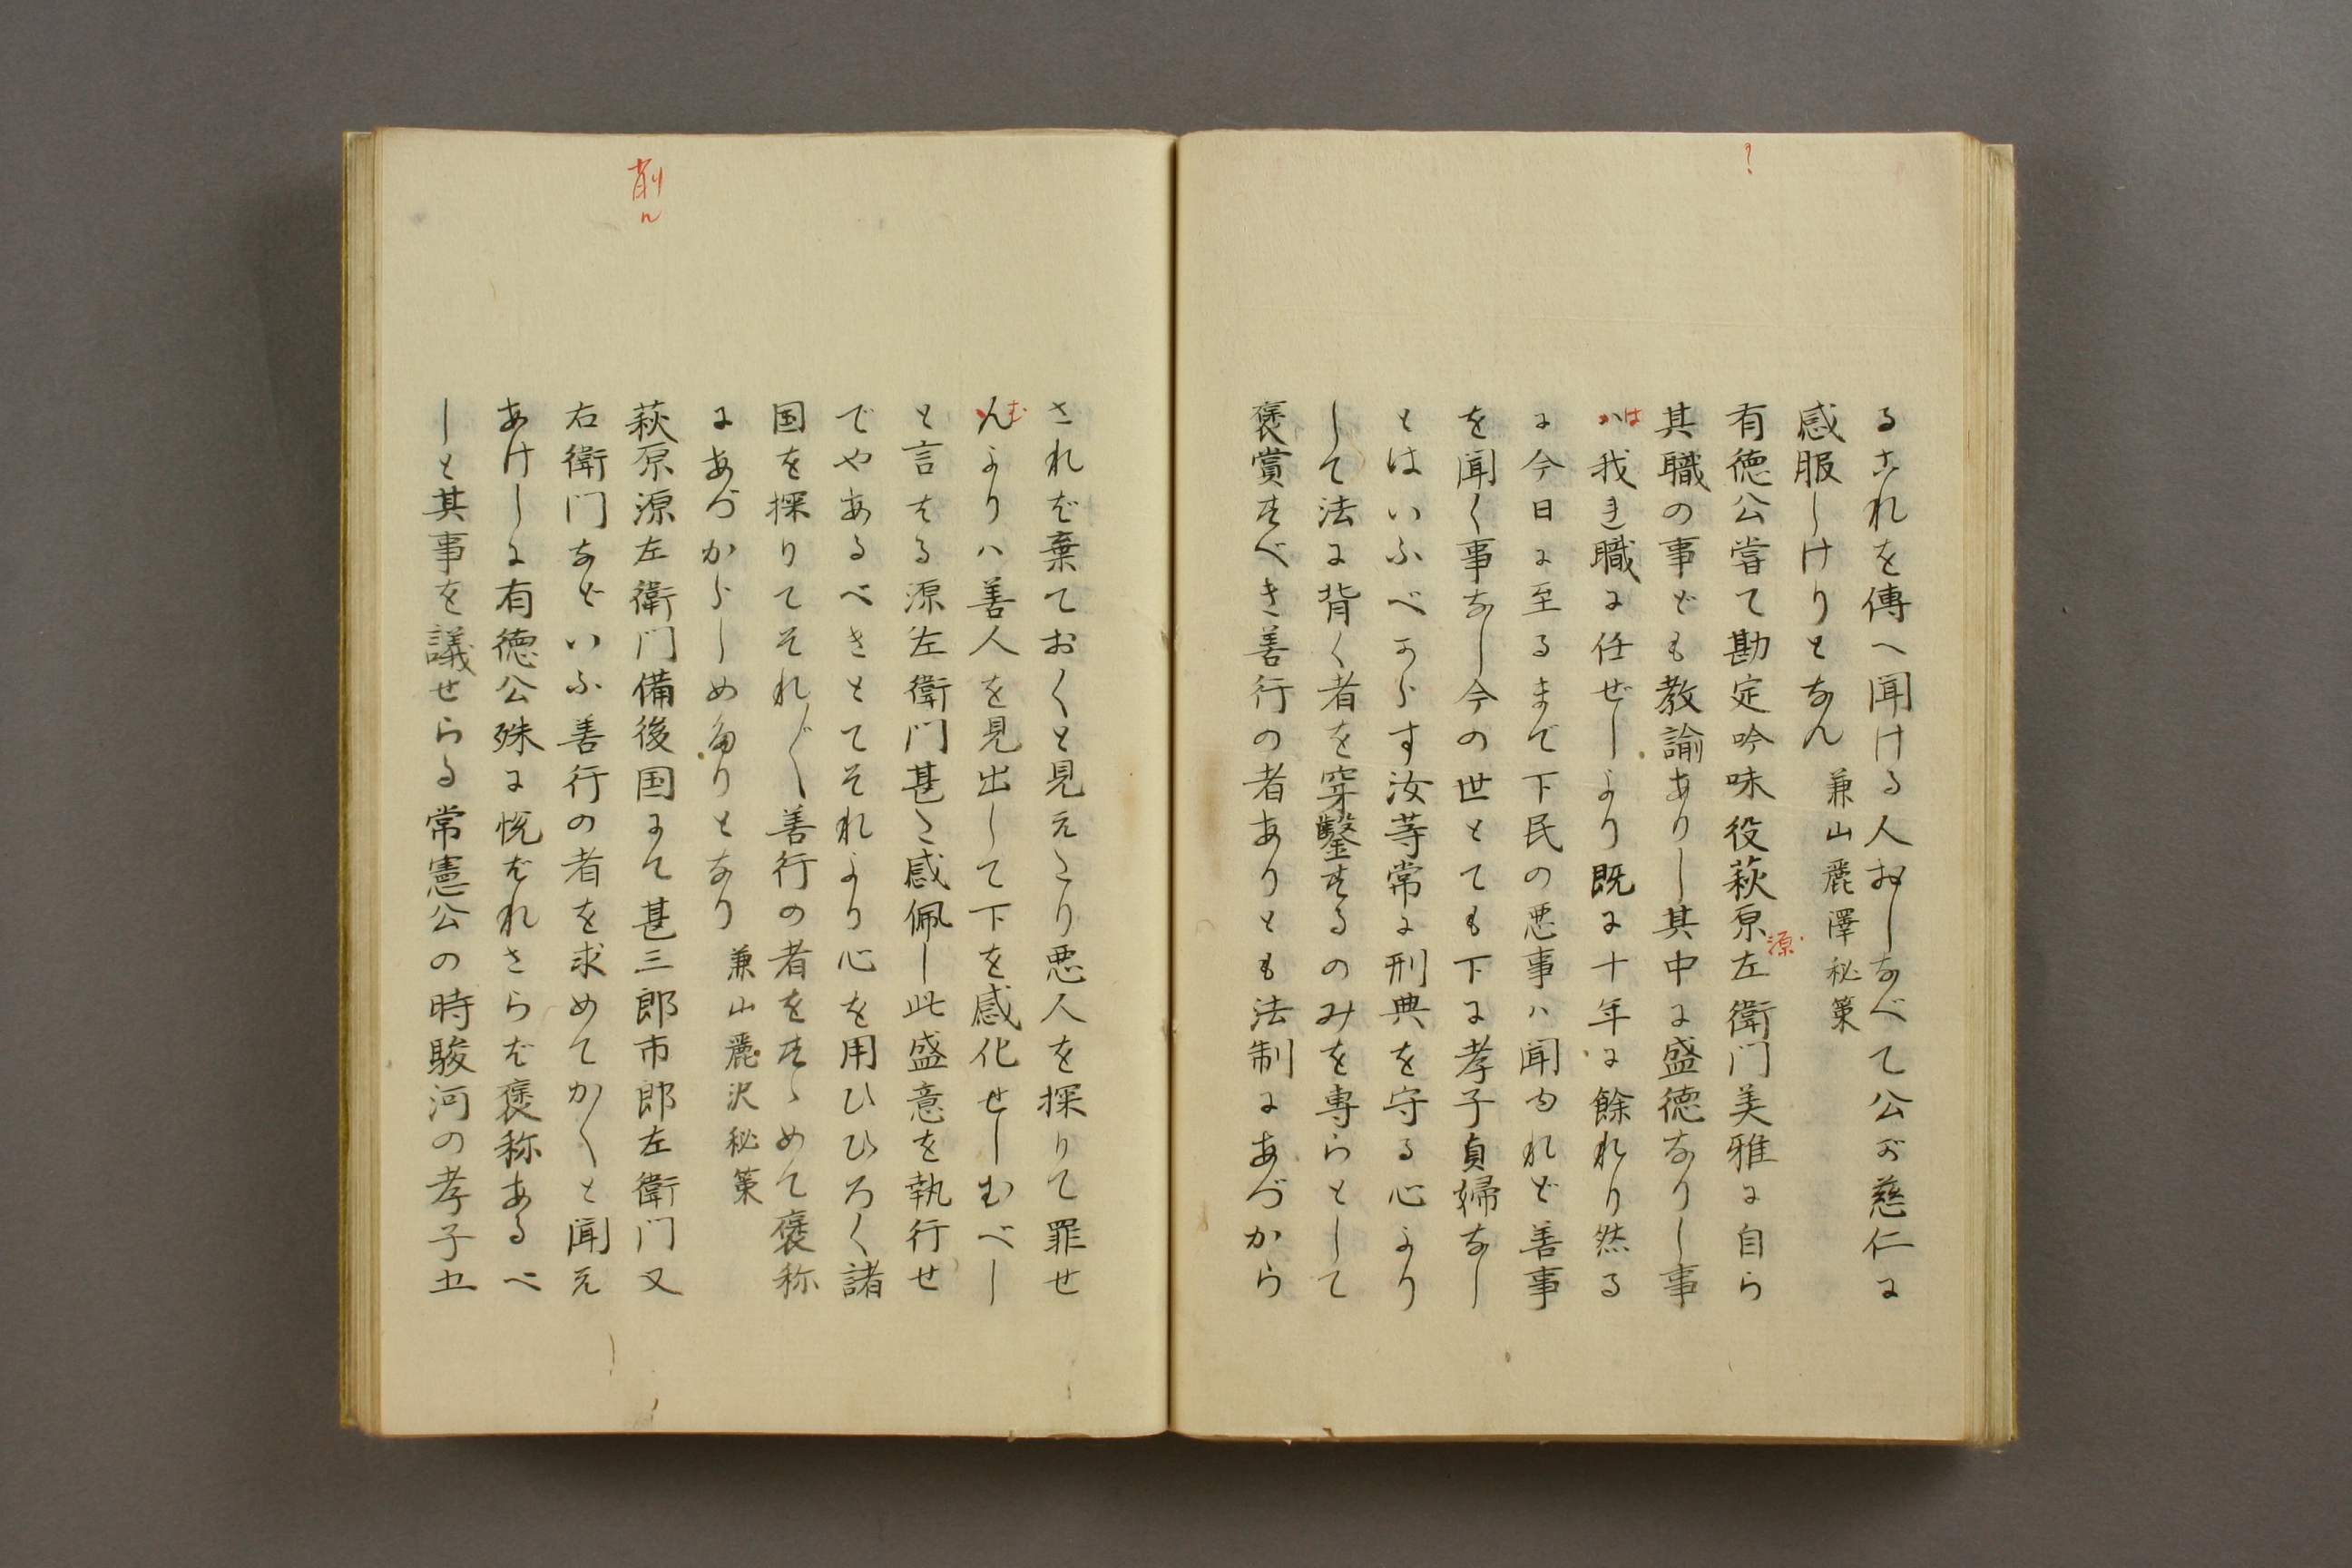 ？
るこれを傳へ聞ける人おしなべて公が慈仁に
感服しけりとなん 兼山麗澤秘策
有徳公嘗て勘定吟味役萩原左衛門美雅に自ら
源
其職の事ども教諭ありし其中に盛徳なりし事
は
ハ我き職に任ぜしより既に十年に餘れり然る
に今日に至るまで下民の悪事ハ聞ゆれど善事
を聞く事なし今の世とても下に孝子貞婦なし
とはいふべからす汝等常に刑典を守る心より
して法に背く者を穿鑿するのみを専らとして
褒賞すべき善行の者ありとも法制にあづから
されば棄ておくと見えたり悪人を探りて罪せ
む
んよりハ善人を見出して下を感化せしむべし
と言ける源左衛門甚く感佩し此盛意を執行せ
でやあるべきとてそれより心を用ひひろく諸
国を探りてそれ〴〵善行の者をすゝめて褒称
にあづからしめたりとなり 兼山麗沢秘策
削ル
萩原源左衛門備後国にて甚三郎市郎左衛門又
右衛門などいふ善行の者を求めてかくと聞え
あけしに有徳公殊に悦ばれさらば褒称あるべ
しと其事を議せらる常憲公の時駿河の孝子五